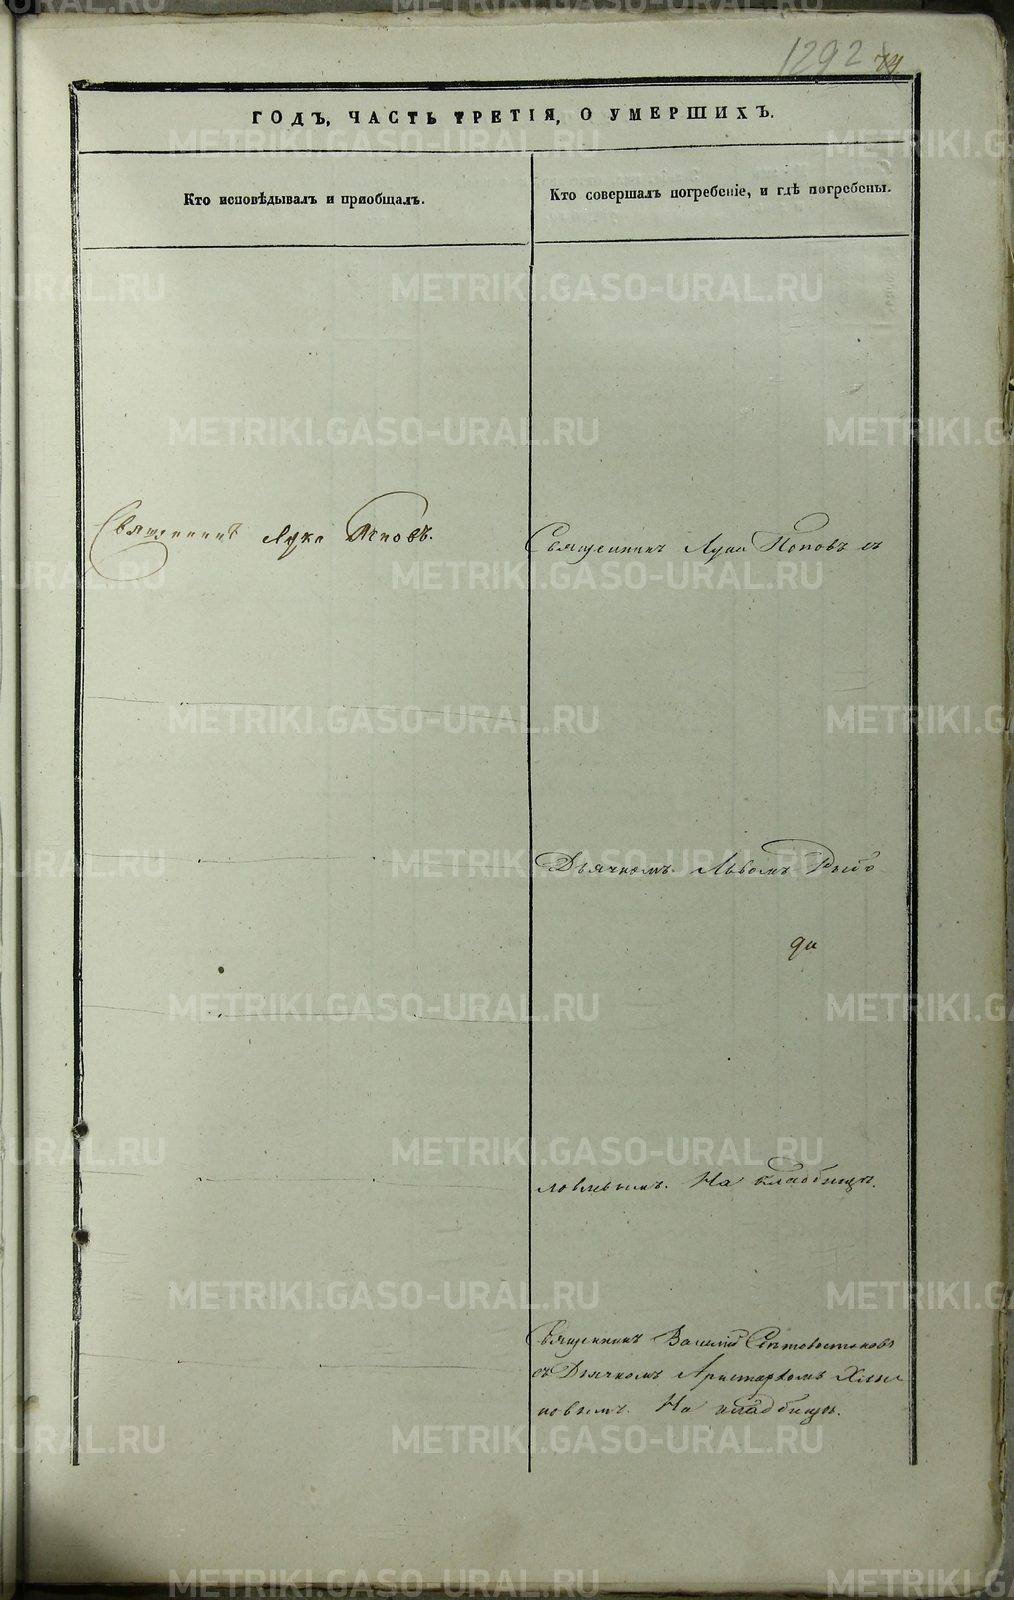 1292
ГОДЪ, ЧАСТЬ ТРЕТІЯ, О УМЕРШИХЪ.
Кто исповѣдывалъ и пріобщалъ.
Кто совершалъ погребеніе, и гдѣ погребены.
Священникъ Лука Поповъ.
Священникъ Лука Поповъ съ
Дьячкомъ Львомъ
ловлевымъ. На кладбищѣ.
Священникъ Василій
съ Дьячкомъ Аристархомъ
новымъ. На кладбищѣ.
METRIKI.GASO-URAL.RU